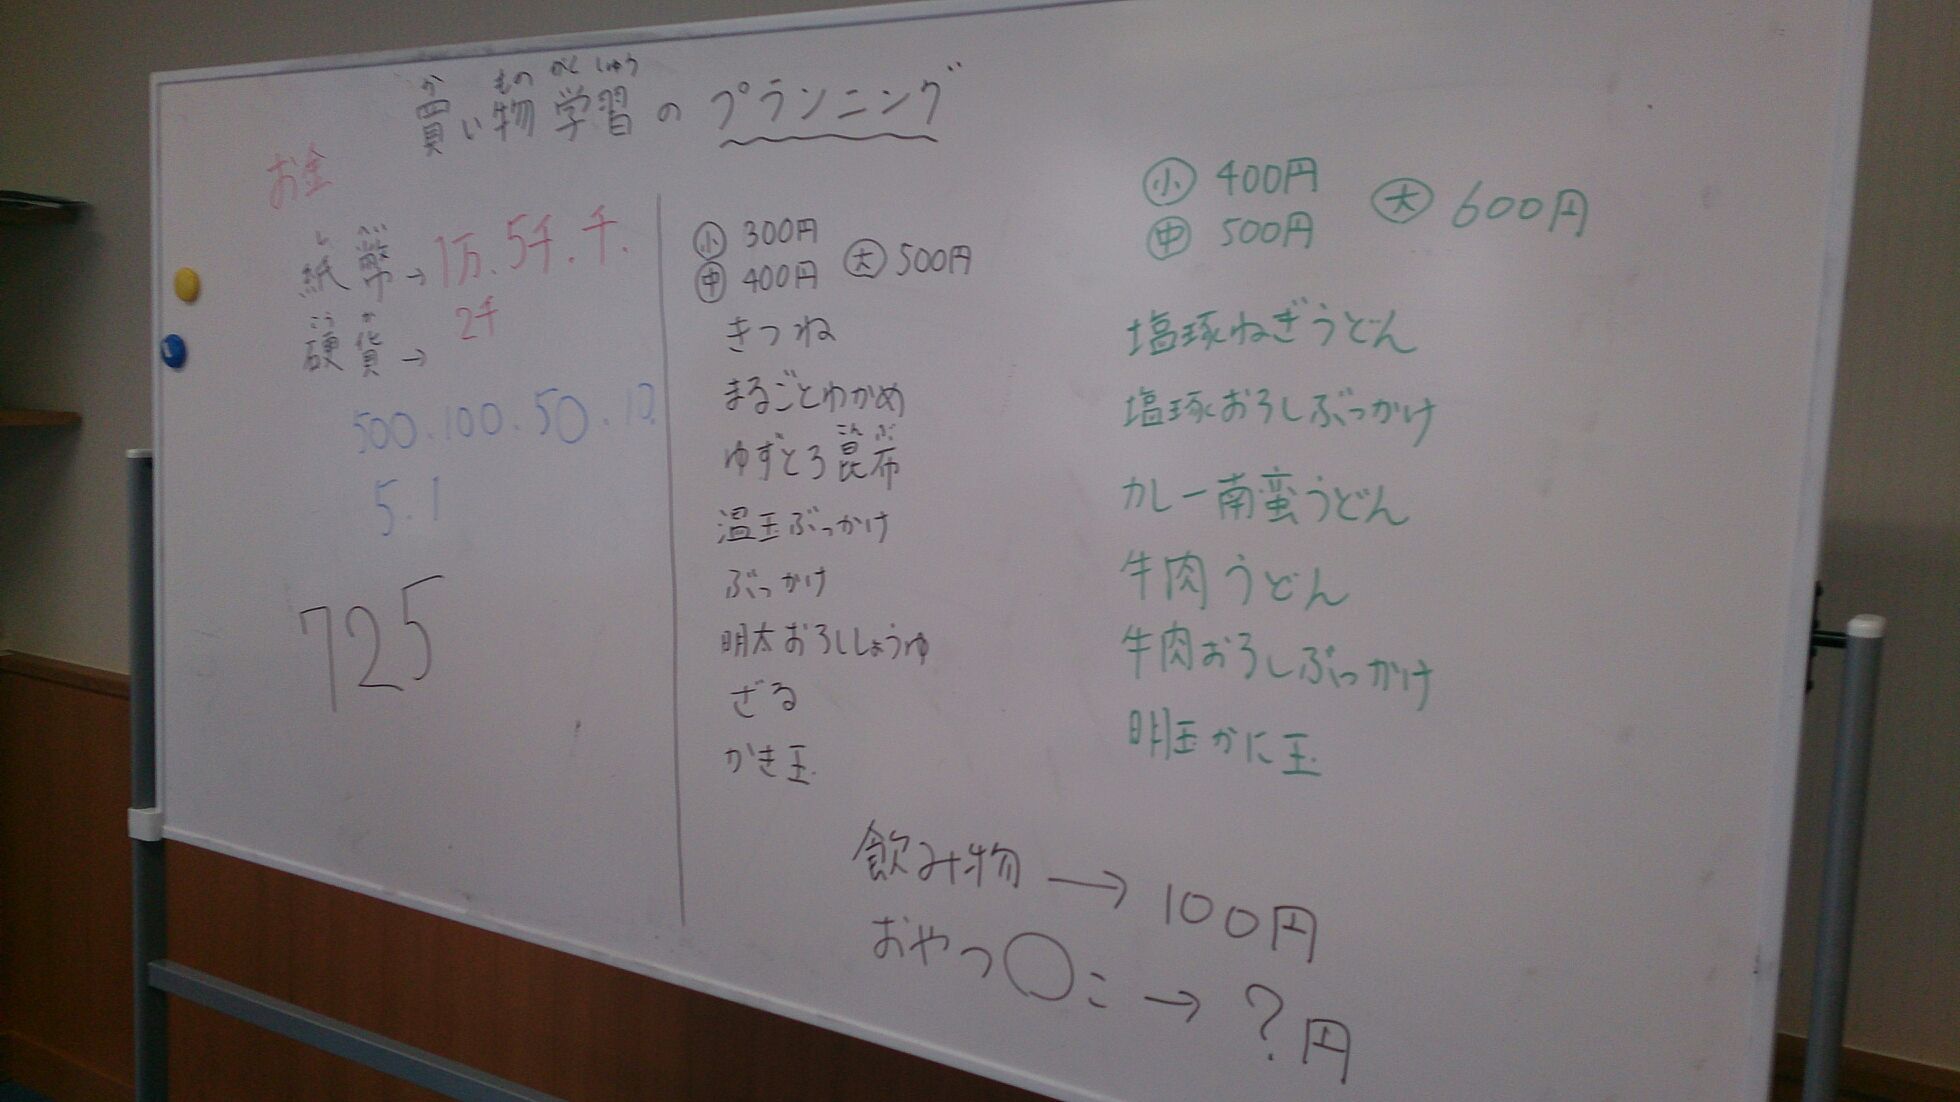 か もの がくしゅう
買い物学習のプランニング
お金
し へい
紙幣→1万.5千.千.
2千
こう か
硬貨→
500.100.50.10.
5.1
725
小 300円
中 400円 大 500円
きつね
まるごとわかめ
こん ぶ
ゆずとろ昆布
温玉ぶっかけ
ぶっかけ
明太おろししょうゆ
ざる
かき玉
小 400円
中 500円 大 600円
塩琢ねぎうどん
塩琢おろしぶっかけ
カレー南蛮うどん
牛肉うどん
牛肉おろしぶっかけ
明玉かに玉
飲み物→100円
おやつ○こ→?円